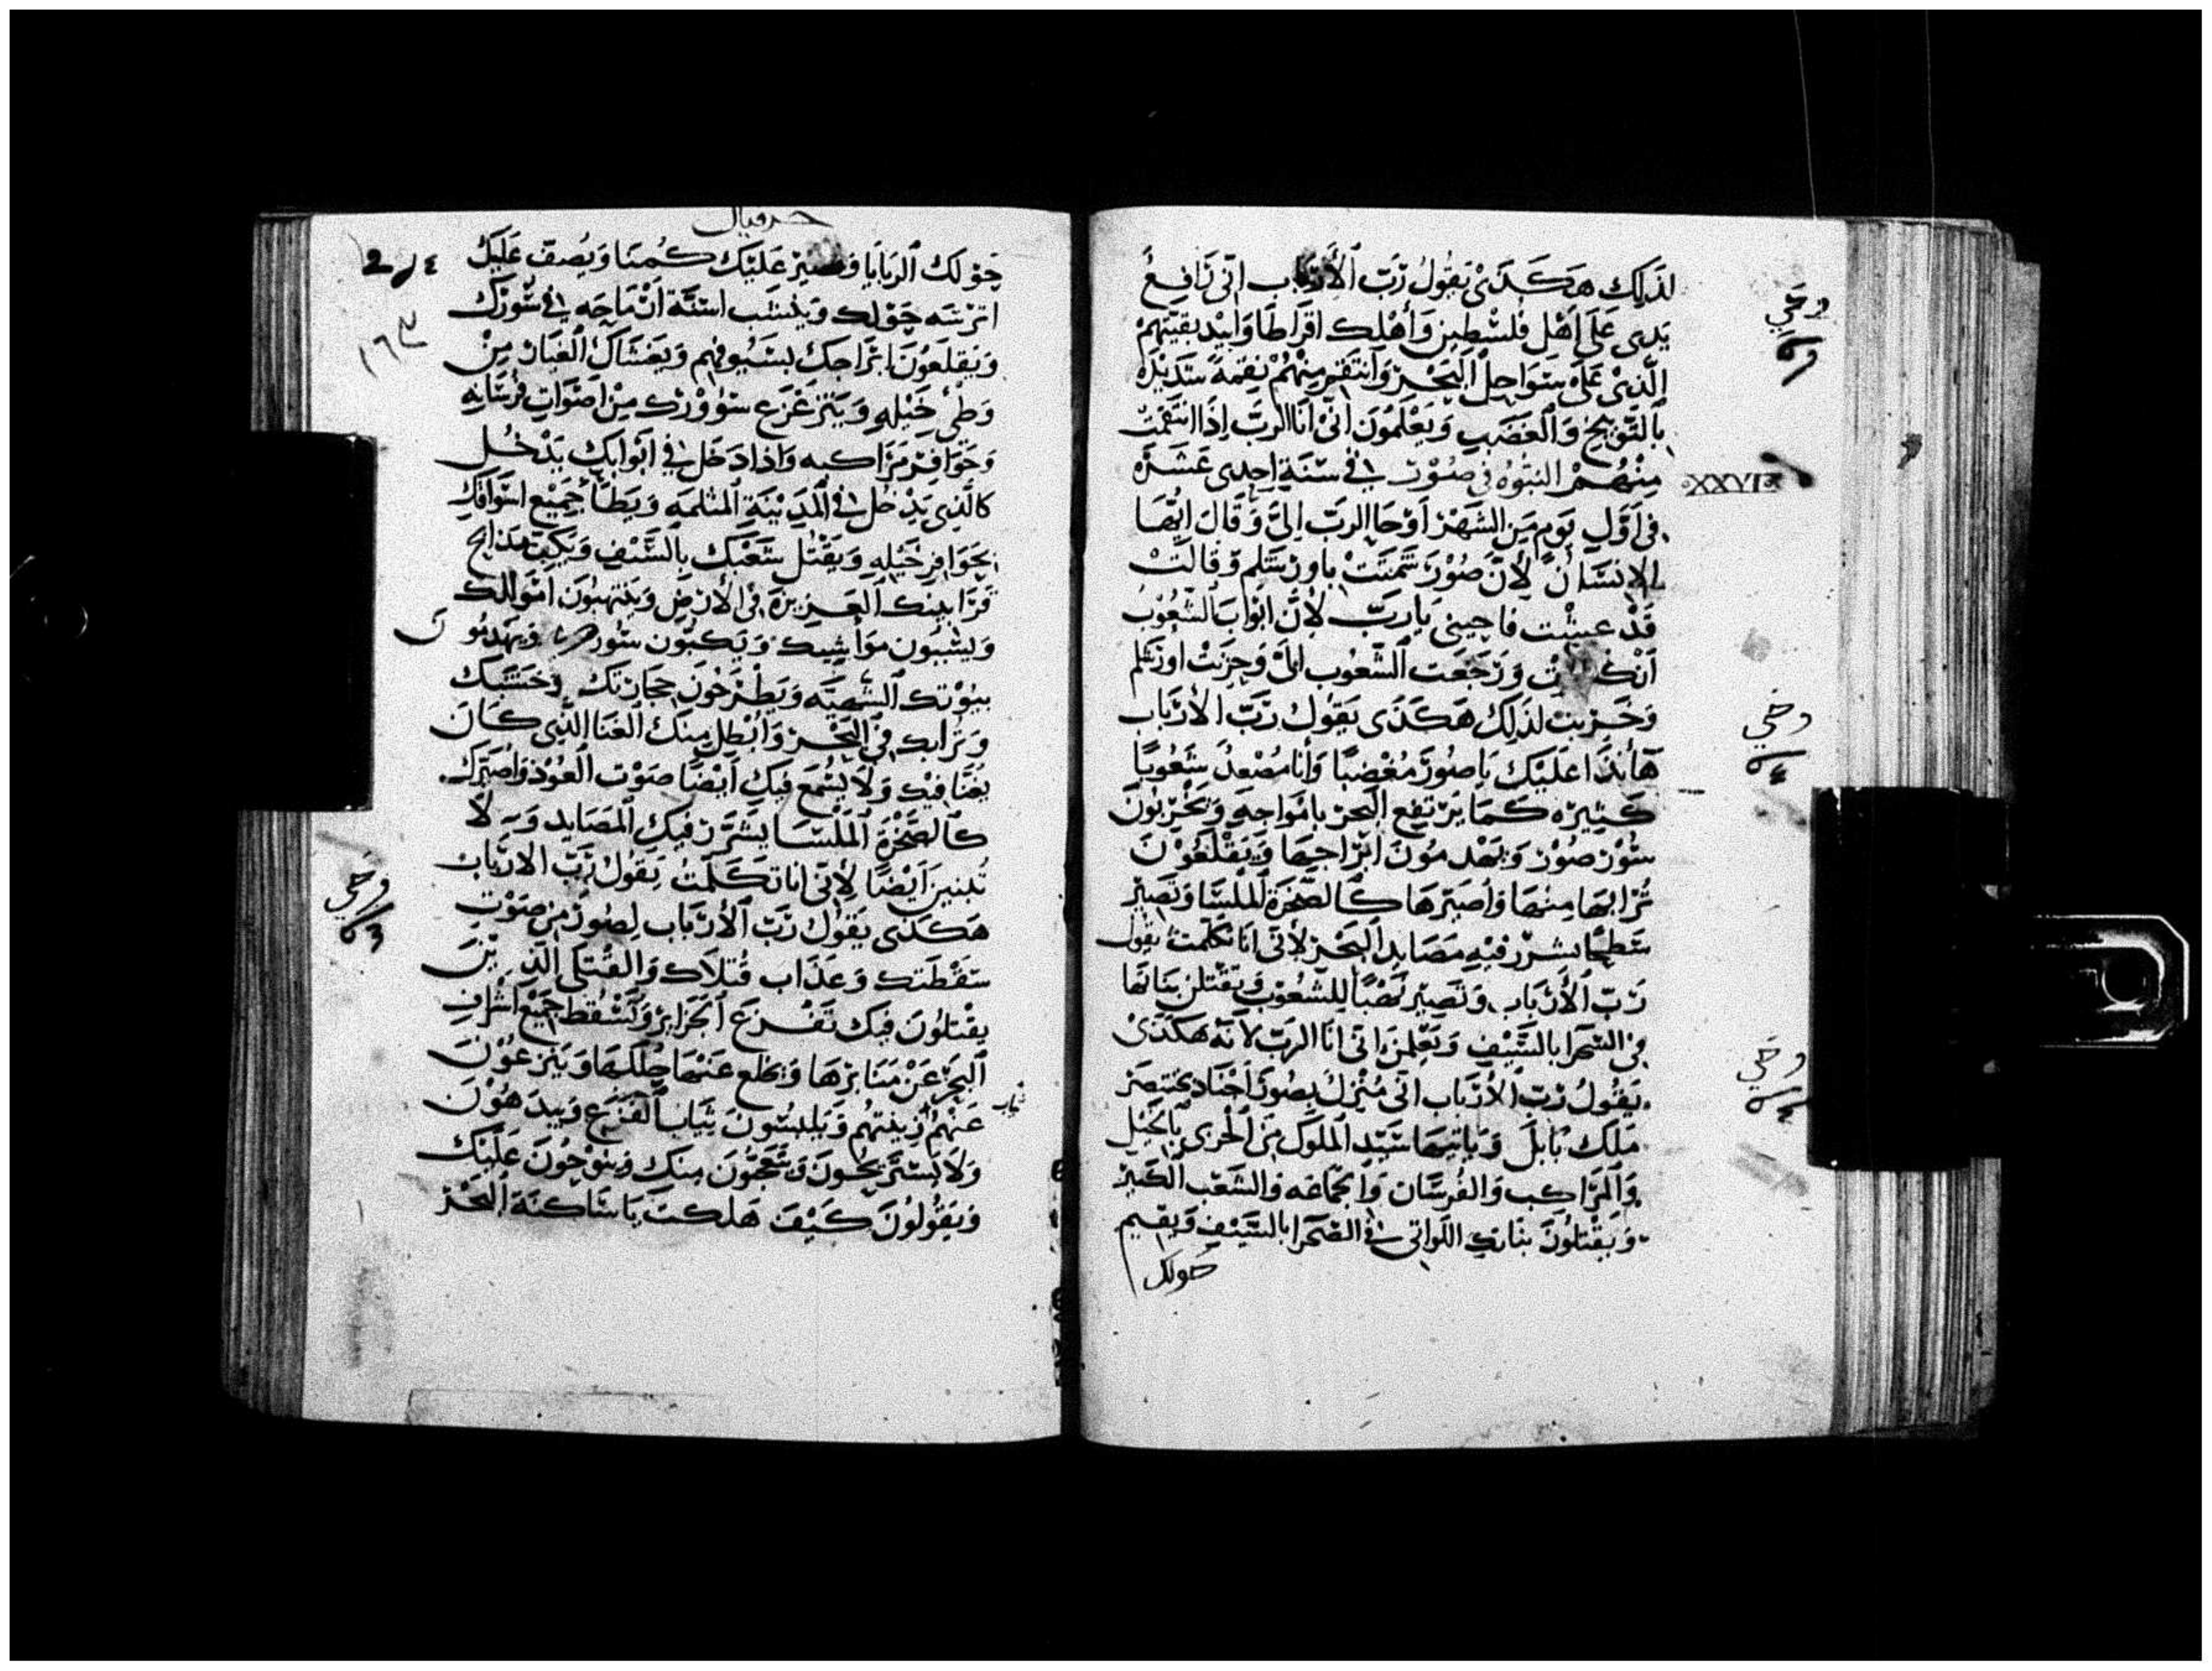 لذَلِك هَكَذَىْ يَقُولُ رَبّ الأَرْبَاب انّى رَافِعُ
يَدِى عَلَى اَهْل فلسْطِين وَأُهْلِك اقرَاطَا وَابِيْد بقيّتهمْ
الّذِىْ عَلَى سَوَاحِل البَحْر وَانتَقِم مِنْهُمْ نِقمَةً شَدِيْدَه
بالتَّوْبيخ وَالغَضَب وَيَعْلَمُونَ انّى اَنَا الرَبّ اِذَا انتَقمتُ
مِنْهُمْ النبُوّه فى صُوْر فى سَنَةِ اِحدى عَشَرَه
فى اَوّلِ يَوم مِن الشَهْر اَوْحَا الربّ اِلىَّ وَقَالَ ايّهَا
الاِنسَان لِأنّ صُوْرَ شَمتَتْ باورشَلِم وَقَالَتْ
قَدْ عِيشْت فاحيينى يَاربّ لأنّ ابْوَاب الشعُوْب
اَنكسرَت وَرَجَعَت الشّعُوب اليَّ وَخِرَبَتْ اورَشَلم
وَخَرِبت لذلِكَ هَكَذَى يَقولُ رَبّ الأرْبَاب
هَأنَذَا عَلَيْك يَا صُورَ مُغْضِبًا وَأنَا مُصْعِدُ شَعُوبًا
كَثِيْرَه كَمَا يَرْتفِع البَحر بامْوَاجِهِ وَيُخْرِبُونَ
سُوْر صُوْر وَيَهْدِمُونَ ابْرَاجِهَا وَيَقْلَعُوْنَ
تُرَابهَا مِنْهَا وَاُصَيّرهَا كَالصَّخرَة المَلْسَا وَتَصِيْر
سَطِيْحًا يشرّر فيْهِ مَصَايِد البَحْر لأنّى انَا تكَلَّمتُ يقُول
رَبّ الأَرْبَاب وَتَصِيْر نَهْبًا لِلشّعُوْب وَيَقْتلنَ بَنَاتهَا
فى الصّحرَا بالسَّيْفِ وَيَعْلمنَ انّى انَا الربّ لأنّه هَكَذَىْ
يَقُولُ رَبّ الأرْبَاب انّى مُنْزِلُ بصُورَ اَجْنَاد بختنصر
مَلِكَ بَابلَ وَيَاتِيهَا سَيّد المُلُوك مِن الجَرْبى بالخَيْل
وَالمَرَاكِب وَالفُرسَان وَالجمَاعَه وَالشَعْب الكَبيْر
وَيَقْتلُونَ بنَاتكِ اللوَاتى فى الصّحرَا بالسَّيْفِ وَيقِيم
حولك
وحي
وحي
وحي
XXVI
حزقيال
١٦٣
حَوْلك الرَبَايَا وَتصِيرْ عَلَيْك كُمنَا وَيُصفّ عَلَيْك
اترسَه حَوْلك وَيُنشب اسنّة ارْمَاحِه فى سُوْرك
وَيَقلَعُونَ ابْرَاجك بسَيُوفِهم وَيَغشَاكَ الغبَار مِنْ
وَطى خَيْلهِ وَيَتزَعْزَع سُووْرك مِنْ اَصْوَاتِ فُرسَانِهِ
وَحَوَافِر مَرَاكبه وَاذا دَخَلَ فى ابْوَابكِ يَدْخُل
كالّذِى يَدْخُل فى المَدِيْنَةِ المثلمَه وَيَطَأُ جَمِيْع اسْوَاقكِ
بحَوَافِر خَيْلهِ وَيَقْتل شَعْبَك بالسَّيْف وَيَكِبّ مَذَابح
قرَابِينك العَزِيزَة فى الأرْض وَينتهِبُون امْوَالك
وَيسْبُون مَوَاشِيك وَيَكبّون سُورك وَيَهدمُون
بيُوْتك الشّهيّه وَيَطْرَحُونَ حِجَارتك وخَشَبك
وَترَابك فى البَحْر وَاُبْطِل مِنك الغنَا الذّى كَانَ
يُغَنّا فيْك وَلَا يُسْمَع فيكِ اَيْضًا صَوْت العُوْد وَاُصَيّرك
كَالصَّخْرَةِ المَلْسَا يشَرَّر فيكِ المَصَايد وَ لَا
تُبنينَ اَيْضًا لِأنّى انا تَكَلّمتُ يَقولُ رَبّ الارْبَاب
هَكَذَى يَقولُ رَبّ الأرْبَاب لِصُورَ مِن صَوْتِ
سَقْطَتك وَعَذَاب قُتلَاك وَالقُتلَى الّذِ يْنَ
يقْتلُونَ فيَك تَفْزَع الجَزَايْر وَيَسْقُط جَمِيْع اشْرَافِ
البَحْر عَنْ مَنَابِرْهَا وَيخلع عَنْهَا حُللَهَا وَيَنزعُوْنَ
عَنْهُم زِينتهُم وَيَلبسُوْنَ ثِيَابَ الفَزَع وَيبدَهُوْن
ثياب
وَلَا يَسْترَيحُونَ وَيَتعَجّبُونَ مِنك وَينُوْحُونَ عَلَيْك
وَيَقُولوُنَ كَيْفَ هَلكتِ يَا سَاكنَة البَحْر
وحي